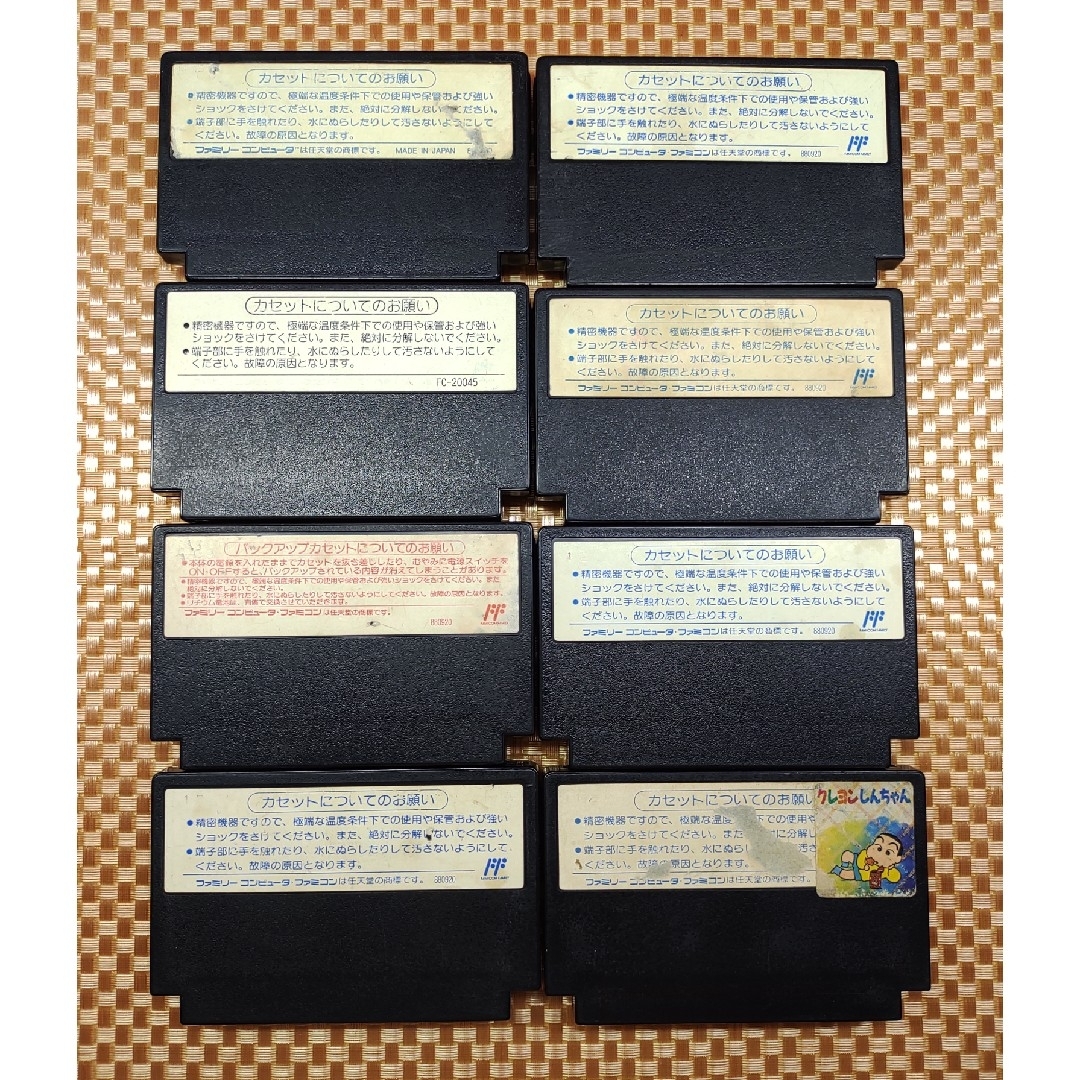 カセットについてのお願い
●精密機器ですので、極端な温度条件下での使用や保管および強い
ショックをさけてください。また、絶対に分解しないでください。
●端子部に手を触れたり、水にぬらしたりして汚さないようにして
ください。故障の原因となります。
ファミリー コンピュータ™は任天堂の商標です。 MADE IN JAPAN
カセットについてのお願い
●精密機器ですので、極端な温度条件下での使用や保管および強い
ショックをさけてください。また、絶対に分解しないでください。
●端子部に手を触れたり、水にぬらしたりして汚さないようにして
ください。故障の原因となります。
ファミリー コンピュータ・ファミコンは任天堂の商標です。 880920
カセットについてのお願い
●精密機器ですので、極端な温度条件下での使用や保管および強い
ショックをさけてください。また、絶対に分解しないでください。
●端子部に手を触れたり、水にぬらしたりして汚さないようにして
ください。故障の原因となります。
FC-20045
カセットについてのお願い
●精密機器ですので、極端な温度条件下での使用や保管および強い
ショックをさけてください。また、絶対に分解しないでください。
●端子部に手を触れたり、水にぬらしたりして汚さないようにして
ください。故障の原因となります。
ファミリー コンピュータ・ファミコンは任天堂の商標です。 880920
バックアップカセットについてのお願い
●本体の電源を入れたままでカセットを抜き差ししたり、むやみに電源スイッチを
ON・OFFすると、バックアップされている内容が消えてしまうことがあります。
●精密機器ですので、極端な温度条件下での使用や保管および強いショックをさけてください。また、
絶対に分解しないでください。
●端子部に手を触れたり、水にぬらしたりして汚さないようにしてください。故障の原因となります。
ファミリー コンピュータ・ファミコンは任天堂の商標です。
880920
カセットについてのお願い
●精密機器ですので、極端な温度条件下での使用や保管および強い
ショックをさけてください。また、絶対に分解しないでください。
●端子部に手を触れたり、水にぬらしたりして汚さないようにして
ください。故障の原因となります。
ファミリー コンピュータ・ファミコンは任天堂の商標です。 880920
カセットについてのお願い
●精密機器ですので、極端な温度条件下での使用や保管および強い
ショックをさけてください。また、絶対に分解しないでください。
●端子部に手を触れたり、水にぬらしたりして汚さないようにして
ください。故障の原因となります。
ファミリー コンピュータ・ファミコンは任天堂の商標です。 880920
カセットについてのお願い
●精密機器ですので、極端な温度
ショックをさけてください。また
●端子部に手を触れたり、水にぬらし
ください。故障の原因となります。
ファミリー コンピュータ・ファミコンは任天堂の商標です。
クレヨンしんちゃん